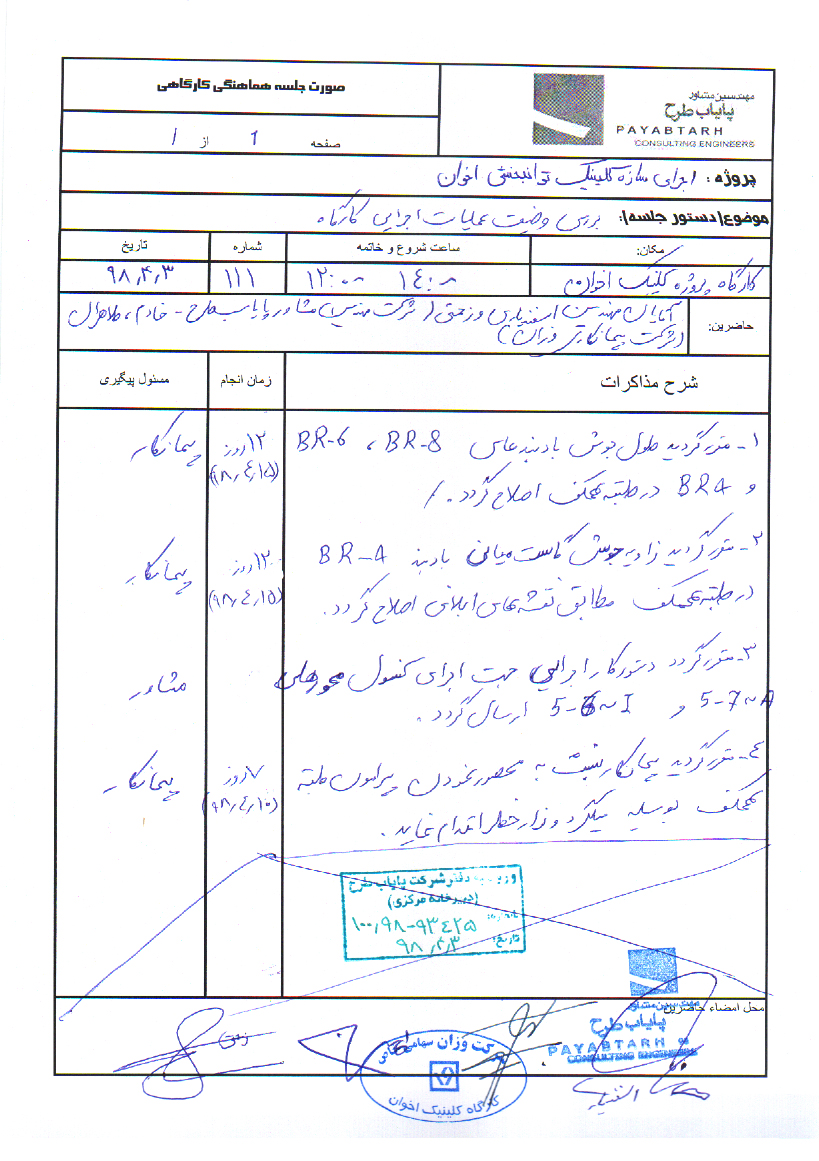 صورت جلسه هماهنگی کارگاهی
مهندسین مشاور
پایاب طرح
PAYABTARH
CONSULTING ENGINEERS
صفحه 1 از 1
پروژه: اجرای سازه کلینیک توانبخشی اخوان
موضوع(دستور جلسه): بررسی وضعیت عملیات اجرایی کارگاه
مکان: ساعت شروع و خاتمه شماره تاریخ
کارگاه پروژه کلینیک اخوان ۱۴:۰۰ ۱۲:۰۰ ۱۱۱ ۹۸,۴,۳
حاضرین: آقایان مهندسین اسفندیاری و رزمی (شرکت مهندسین مشاور پایاب طرح - خادم،
(شرکت پیمانکاری وزان)
شرح مذاکرات زمان انجام مسئول پیگیری
۱- مقرر گردید طول جوش بادبندهای BR-8 ، BR-6 ۱۲ روز پیمانکار
و BR4 در طبقه همکف اصلاح گردد. (۹۸,٤,۱۵)
۲- مقرر گردید زاویه جوش گاست میانی بادبند BR-4 ۱۲ روز پیمانکار
در طبقه همکف مطابق نقشه های ابلاغی اصلاح گردد. (۹۸,٤,۱۵)
۳- مقرر گردد دستور کار اجرایی جهت اجرای کنسول محورهای مشاور
5-7~A و 5-6~I ارسال گردد.
٤- مقرر گردید پیمانکار نسبت به محصور نمودن پیرامون طبقه ۷ روز پیمانکار
همکف بوسیله میلگرد و نوار خطر اقدام نماید. (۹۸,٤,۱۰)
ورود به دفتر شرکت پایاب طرح
(دبیرخانه مرکزی)
۱۰۰,۹۸-۹۳٤۲۵
تاریخ: ۹۸,۴,۳
محل امضاء حاضرین
مهندسین مشاور
پایاب طرح
PAYABTARH
CONSULTING ENGINEERS
شرکت وزان سهامی خاص
کارگاه کلینیک اخوان